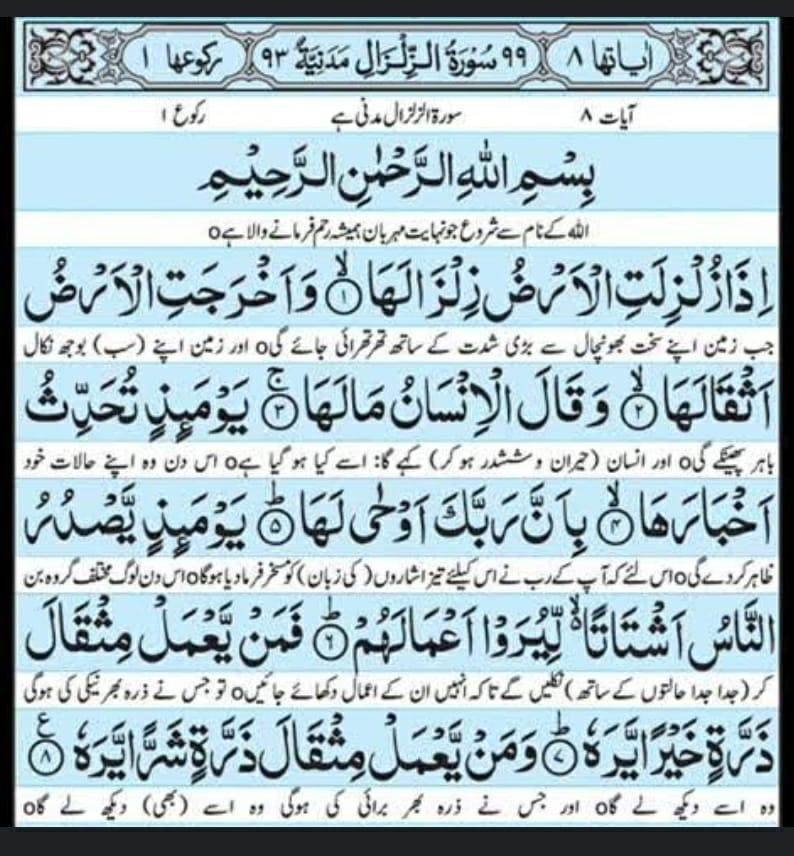 اٰیاتھا ۸ ۹۹ سُوْرَةُ الزِّلْزَالِ مَدَنِیَّةٌ ۹۳ رکوعھا ۱
آیات ۸ سورۃ الزلزال مدنی ہے رکوع ۱
بِسْمِ اللّٰهِ الرَّحْمٰنِ الرَّحِیْمِ
اللہ کے نام سے شروع جو نہایت مہربان ہمیشہ رحم فرمانے والا ہےo
اِذَا زُلْزِلَتِ الْاَرْضُ زِلْزَالَهَا ۙ۱ وَ اَخْرَجَتِ الْاَرْضُ
جب زمین اپنے سخت بھونچال سے بڑی شدت کے ساتھ تھرتھرائی جائے گیo اور زمین اپنے (سب) بوجھ نکال
اَثْقَالَهَا ۙ۲ وَ قَالَ الْاِنْسَانُ مَا لَهَا ۚ۳ یَوْمَىِٕذٍ تُحَدِّثُ
باہر پھینکے گیo اور انسان (حیران و ششدر ہو کر) کہے گا: اسے کیا ہو گیا ہےo اس دن وہ اپنے حالات خود
اَخْبَارَهَا ۙ۴ بِاَنَّ رَبَّكَ اَوْحٰى لَهَا ؕ۵ یَوْمَىِٕذٍ یَّصْدُرُ
ظاہر کر دے گیo اس لئے کہ آپ کے رب نے اس کیلئے تیز اشاروں (کی زبان) کو مسخر فرما دیا ہوگاo اس دن لوگ مختلف گروہ بن
النَّاسُ اَشْتَاتًا ۙ۬ لِّیُرَوْا اَعْمَالَهُمْ ؕ۶ فَمَنْ یَّعْمَلْ مِثْقَالَ
کر (جدا جدا حالتوں کے ساتھ) نکلیں گے تاکہ انہیں ان کے اعمال دکھائے جائیںo تو جس نے ذرہ بھر نیکی کی ہوگی
ذَرَّةٍ خَیْرًا یَّرَهٗ ؕ۷ وَ مَنْ یَّعْمَلْ مِثْقَالَ ذَرَّةٍ شَرًّا یَّرَهٗ ۠۸
وہ اسے دیکھ لے گاo اور جس نے ذرہ بھر برائی کی ہوگی وہ اسے (بھی) دیکھ لے گاo